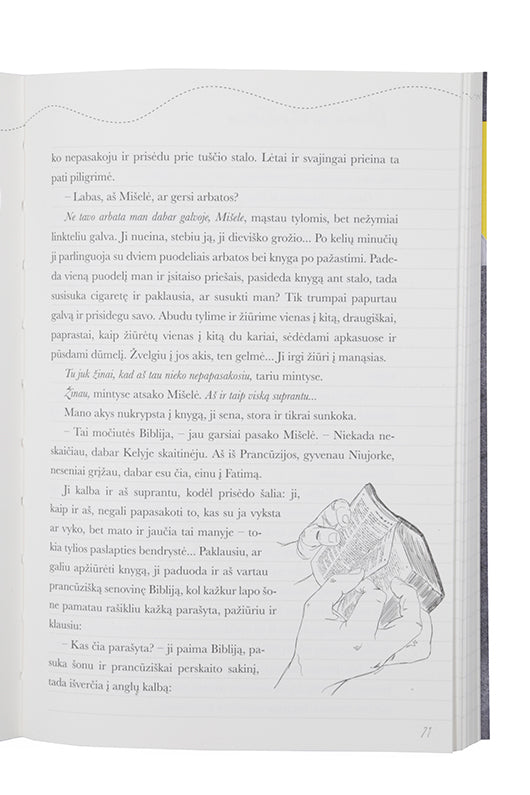 ko nepasakoju ir prisėdu prie tuščio stalo. Lėtai ir svajingai prieina ta
pati piligrimė.
– Labas, aš Mišelė, ar gersi arbatos?
Ne tavo arbata man dabar galvoje, Mišele, mąstau tylomis, bet nežymiai
linkteliu galva. Ji nueina, stebiu ją, ji dieviško grožio... Po kelių minučių
ji parlinguoja su dviem puodeliais arbatos bei knyga po pažastimi. Pade-
da vieną puodelį man ir įsitaiso priešais, pasideda knygą ant stalo, tada
susisuka cigaretę ir paklausia, ar susukti man? Tik trumpai papurtau
galvą ir prisidegu savo. Abudu tylime ir žiūrime vienas į kitą, draugiškai,
paprastai, kaip žiūrėtų vienas į kitą du kariai, sėdėdami apkasuose ir
pūsdami dūmelį. Žvelgiu į jos akis, ten gelmė... Ji irgi žiūri į manąsias.
Tu juk žinai, kad aš tau nieko nepapasakosiu, tariu mintyse.
Žinau, mintyse atsako Mišelė. Aš ir taip viską suprantu...
Mano akys nukrypsta į knygą, ji sena, stora ir tikrai sunkoka.
– Tai močiutės Biblija, – jau garsiai pasako Mišelė. – Niekada ne-
skaičiau, dabar Kelyje skaitinėju. Aš iš Prancūzijos, gyvenau Niujorke,
neseniai grįžau, dabar esu čia, einu į Fatimą.
Ji kalba ir aš suprantu, kodėl prisėdo šalia: ji,
kaip ir aš, negali papasakoti to, kas su ja vyksta
ar vyko, bet mato ir jaučia tai manyje – to-
kia tylios paslapties bendrystė... Paklausiu, ar
galiu apžiūrėti knygą, ji paduoda ir aš vartau
prancūzišką senovinę Bibliją, kol kažkur lapo šo-
ne pamatau rašikliu kažką parašyta, pažiūriu ir
klausiu:
– Kas čia parašyta? – ji paima Bibliją, pa-
suka šonu ir prancūziškai perskaito sakinį,
tada išverčia į anglų kalbą:
71